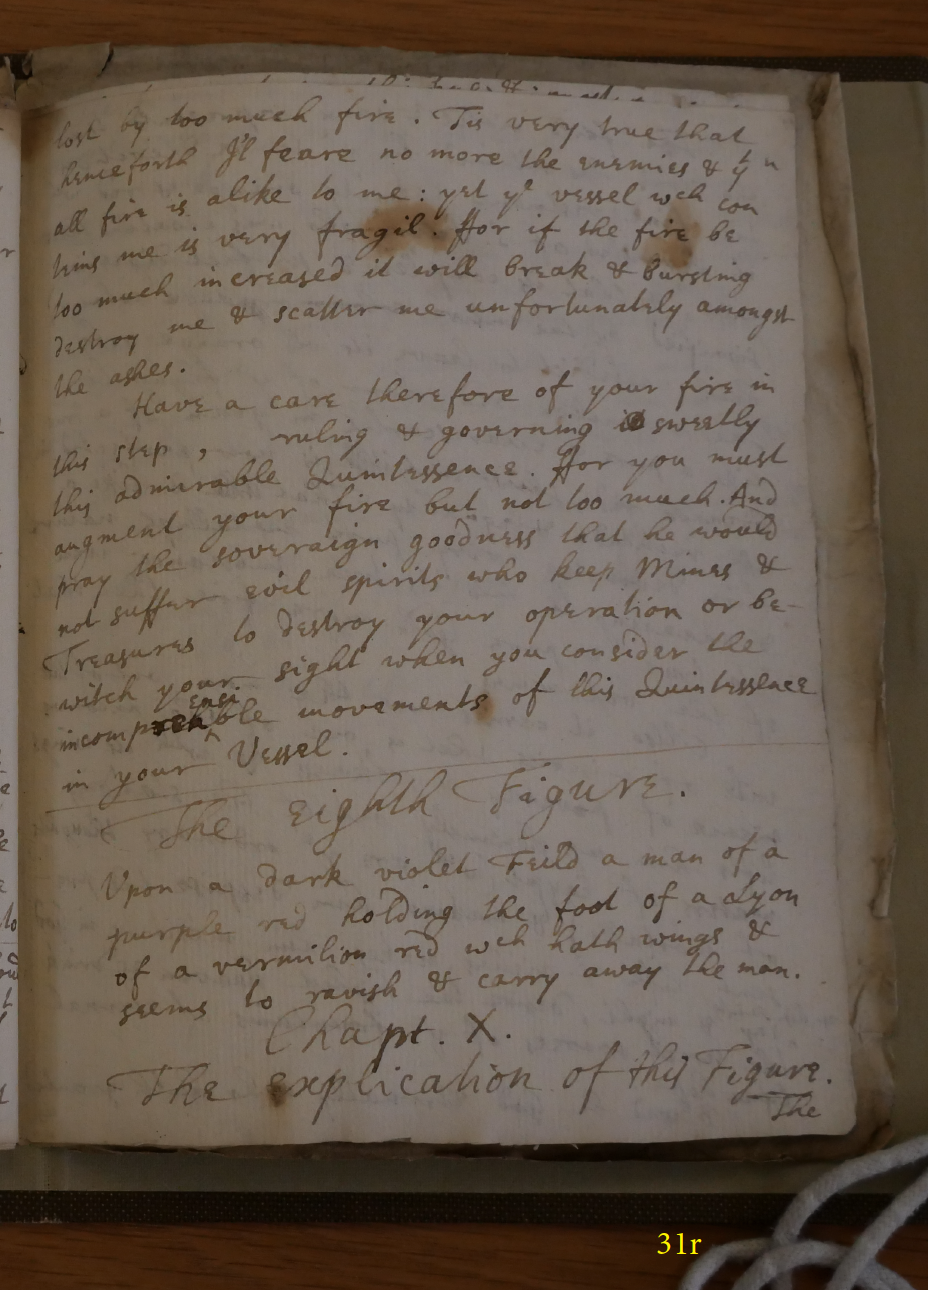 lost by too much fire. Tis very true that
henceforth I'l feare no more the enemies & yt
all fire is alike to me: yet ye vessel wch con
teins me is very fragil. For if the fire be
too much increased it will break & bursting
destroy me & scatter me unfortunately amongst
the ashes.
Have a care therefore of your fire in
this step, ruling & governing sweetly
this admirable Quintessence. For you must
augment your fire but not too much. And
pray the soveraign goodness that he would
not suffer evil spirits who keep Mines &
Treasures to destroy your operation or be-
witch your sight when you consider the
incomprehensible movements of this Quintessence
in your Vessel.
The Eighth Figure.
Upon a dark violet Feild a man of a
purple red holding the foot of a Lyon
of a vermilion red wch hath wings &
seems to ravish & carry away the man.
Chapt. X.
The explication of this Figure.
The
31r